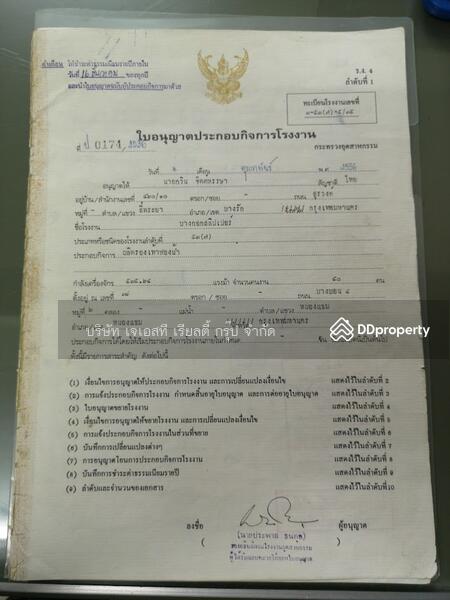 คำเตือน ให้ชำระค่าธรรมเนียมรายปีภายใน
วันที่ 16 ธันวาคม ของทุกปี
และนำใบอนุญาตฉบับนี้ประกอบกิจการมาด้วย
ร.ง. 4
ลำดับที่ 1
ทะเบียนโรงงานเลขที่
ใบอนุญาตประกอบกิจการโรงงาน
ที่ ป 0174/2536
กระทรวงอุตสาหกรรม
วันที่ ๒ เดือน กุมภาพันธ์ พ.ศ. ๒๕๓๖
อนุญาตให้ สัญชาติ ไทย
อยู่บ้าน/สำนักงานเลขที่ ตรอก/ซอย - ถนน สุรวงศ์
หมู่ที่ - ตำบล/แขวง สี่พระยา อำเภอ/เขต บางรัก จังหวัด กรุงเทพมหานคร
ชื่อโรงงาน บางกอกสลิปเปอร์
ประเภทหรือชนิดของโรงงานลำดับที่
ประกอบกิจการ ผลิตรองเท้าฟองน้ำ
กำลังเครื่องจักร แรงม้า จำนวนคนงาน ๕๐ คน
ตั้งอยู่ ณ เลขที่ ตรอก/ซอย - ถนน บางบอน ๕
หมู่ที่ ๒ คลอง - แม่น้ำ - ตำบล/แขวง หนองแขม
หนองแขม กรุงเทพมหานคร
บริษัท เจเอสที เรียลตี้ กรุ๊ป จำกัด
DDproperty
ประกอบกิจการได้โดยให้เริ่มประกอบกิจการโรงงานภายในกำหนด
ทั้งนี้มีรายการสาระสำคัญ ดังต่อไปนี้
(1) เงื่อนไขการอนุญาตให้ประกอบกิจการโรงงาน และการเปลี่ยนแปลงเงื่อนไข แสดงไว้ในลำดับที่ 2
(2) การแจ้งประกอบกิจการโรงงาน กำหนดสิ้นอายุใบอนุญาต และการต่ออายุใบอนุญาต แสดงไว้ในลำดับที่ 3
(3) ใบอนุญาตขยายโรงงาน แสดงไว้ในลำดับที่ 4
(4) เงื่อนไขการอนุญาตให้ขยายโรงงาน และการเปลี่ยนแปลงเงื่อนไข แสดงไว้ในลำดับที่ 5
(5) การแจ้งประกอบกิจการโรงงานในส่วนที่ขยาย แสดงไว้ในลำดับที่ 6
(6) บันทึกการเปลี่ยนแปลงต่างๆ แสดงไว้ในลำดับที่ 7
(7) การอนุญาตโอนการประกอบกิจการโรงงาน แสดงไว้ในลำดับที่ 8
(8) บันทึกการชำระค่าธรรมเนียมรายปี แสดงไว้ในลำดับที่ 9
(9) ลำดับและจำนวนของเอกสาร แสดงไว้ในลำดับที่ 10
ลงชื่อ ผู้อนุญาต
(นายประพาส ธนกิจ)